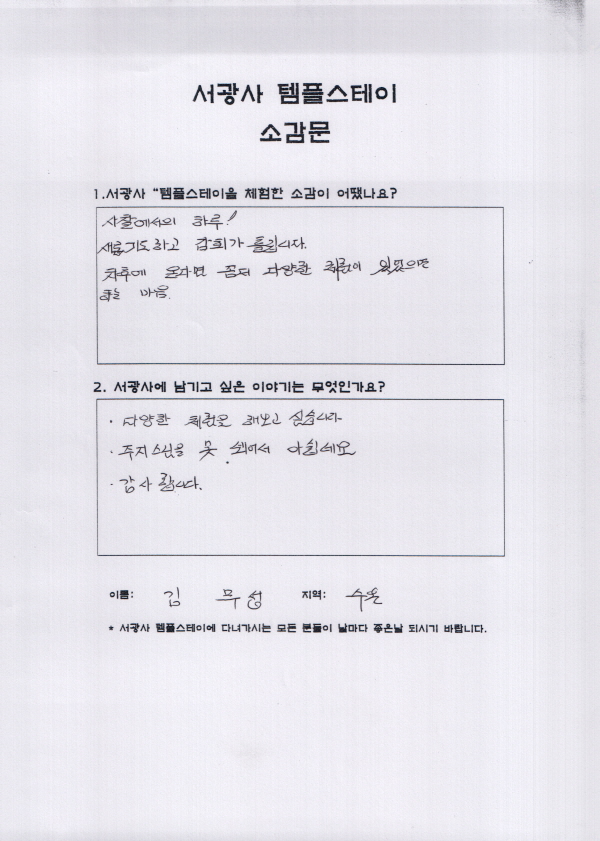 서광사 템플스테이
소감문
1.서광사 "템플스테이을 체험한 소감이 어땠나요?
사찰에서의 하루!
새롭기도하고 감회가 듭니다.
차후에 온다면 좀더 다양한 체험이 있었으면
하는 마음.
2. 서광사에 남기고 싶은 이야기는 무엇인가요?
· 다양한 체험을 해보고 싶습니다
· 주지스님을 못 뵈어서 아쉽네요
· 감사합니다.
이름: 김 무성 지역: 수원
* 서광사 템플스테이에 다녀가시는 모든 분들이 날마다 좋은날 되시기 바랍니다.